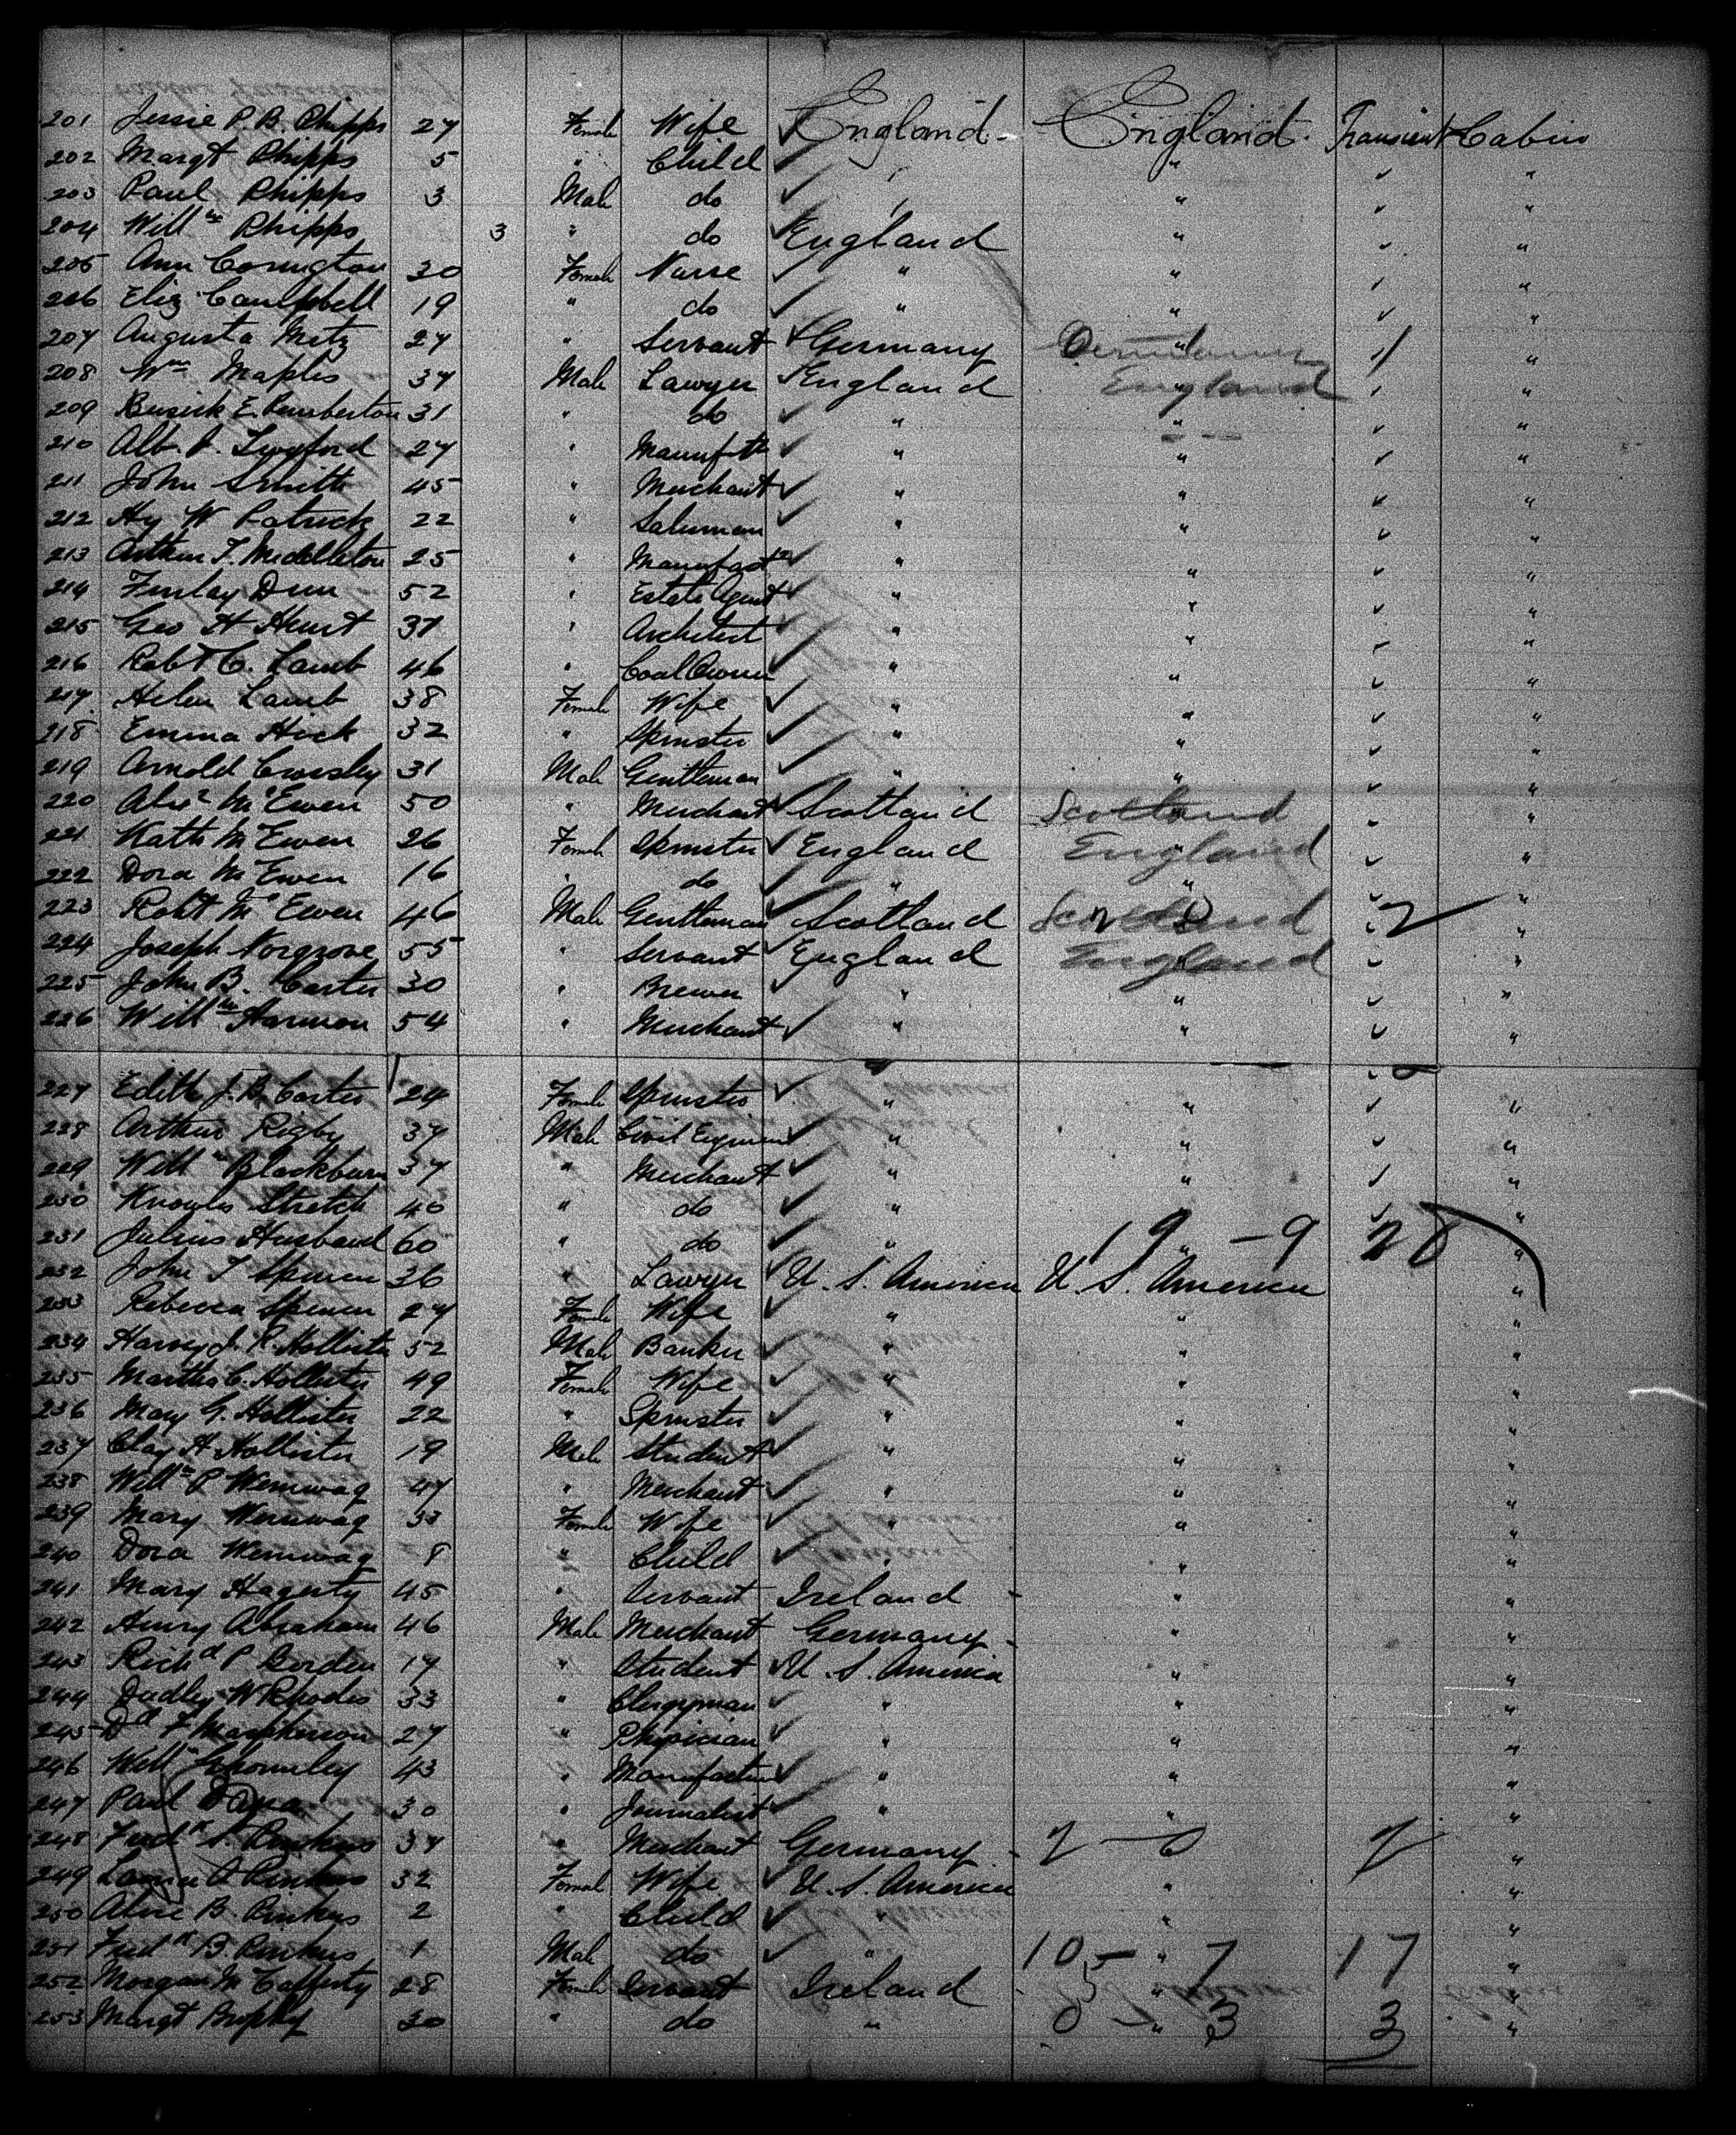 201 Jessie P. B. Phipps 27 Female Wife England England Transient Cabin
202 Margt Phipps 5 " Child " " "
203 Paul Phipps 3 Male do " " "
204 Will^m Phipps 3 " do England " "
205 Ann Conington 30 Female Nurse " " "
206 Eliz Campbell 19 " do " " "
207 Augusta Metz 27 " Servant Germany " "
208 W^m Maples 37 Male Lawyer England England "
209 Busick E. Pemberton 31 " do " " "
210 Alb. 27 " " " "
211 John Smith 45 " Merchant " " "
212 Hy W Patrick 22 " Salesman " " "
213 Arthur T. Middleton 25 " Manufact^r " " "
214 Finlay Dun 52 " Estate Agent " " "
215 Geo H 37 " Architect " " "
216 Robt C. Lamb 46 " Coal Owner " " "
217 Helen Lamb 38 Female Wife " " "
218 Emma Hick 32 " Spinster " " "
219 Arnold Crossley 31 Male Gentleman " " "
220 Alex^r M^cEwen 50 " Merchant Scotland Scotland "
221 Kath M^cEwen 26 Female Spinster England England "
222 Dora M^cEwen 16 " do " " "
223 Robt M^cEwen 46 Male Gentleman Scotland Scotland 2 "
224 Joseph Norgrove 55 " Servant England England "
225 John B. Carter 30 " Brewer " " "
226 Will^m Harmon 54 " Merchant " " "
227 Edith J. B. Carter 24 Female Spinster " " "
228 Arthur Rigby 37 Male Civil Engineer " " "
229 Will^m Blackburn 37 " Merchant " " "
230 Knowles Stretch 40 " do " " "
231 Julius Husband 60 " do " 19 " - 9 28 "
232 John T Spencer 36 " Lawyer U. S. America U. S. America "
233 Rebecca Spencer 27 Female Wife " " "
234 Harvey J. R. Hollister 52 Male Banker " " "
235 Martha C. Hollister 49 Female Wife " " "
236 Mary G. Hollister 22 " Spinster " " "
237 Clay H. Hollister 19 Male Student " " "
238 Will^m P Wernwag 47 " Merchant " " "
239 Mary Wernwag 33 Female Wife " " "
240 Dora Wernwag 8 " Child " " "
241 Mary Hagerty 45 " Servant Ireland " "
242 Henry Abraham 46 Male Merchant Germany " "
243 Rich^d P Borden 17 " Student U. S. America " "
244 Dudley W Rhodes 33 " Clergyman " " "
245 D^d F Macpherson 27 " Physician " " "
246 Will^m Ghormley 43 " Manufacturer " " "
247 Paul Dana 30 " Journalist " " "
248 Fred^k S Pinkus 37 " Merchant Germany 2 - 0 2 "
249 Pinkus 32 Female Wife U. S. America " "
250 Alice B. Pinkus 2 " Child " " "
251 Fred^k B. Pinkus 1 Male do " 10 - " 7 17 "
252 Morgan M^cCafferty 28 Female Servant Ireland " "
253 Margt Brophy 30 " do " 0 - " 3 3 "